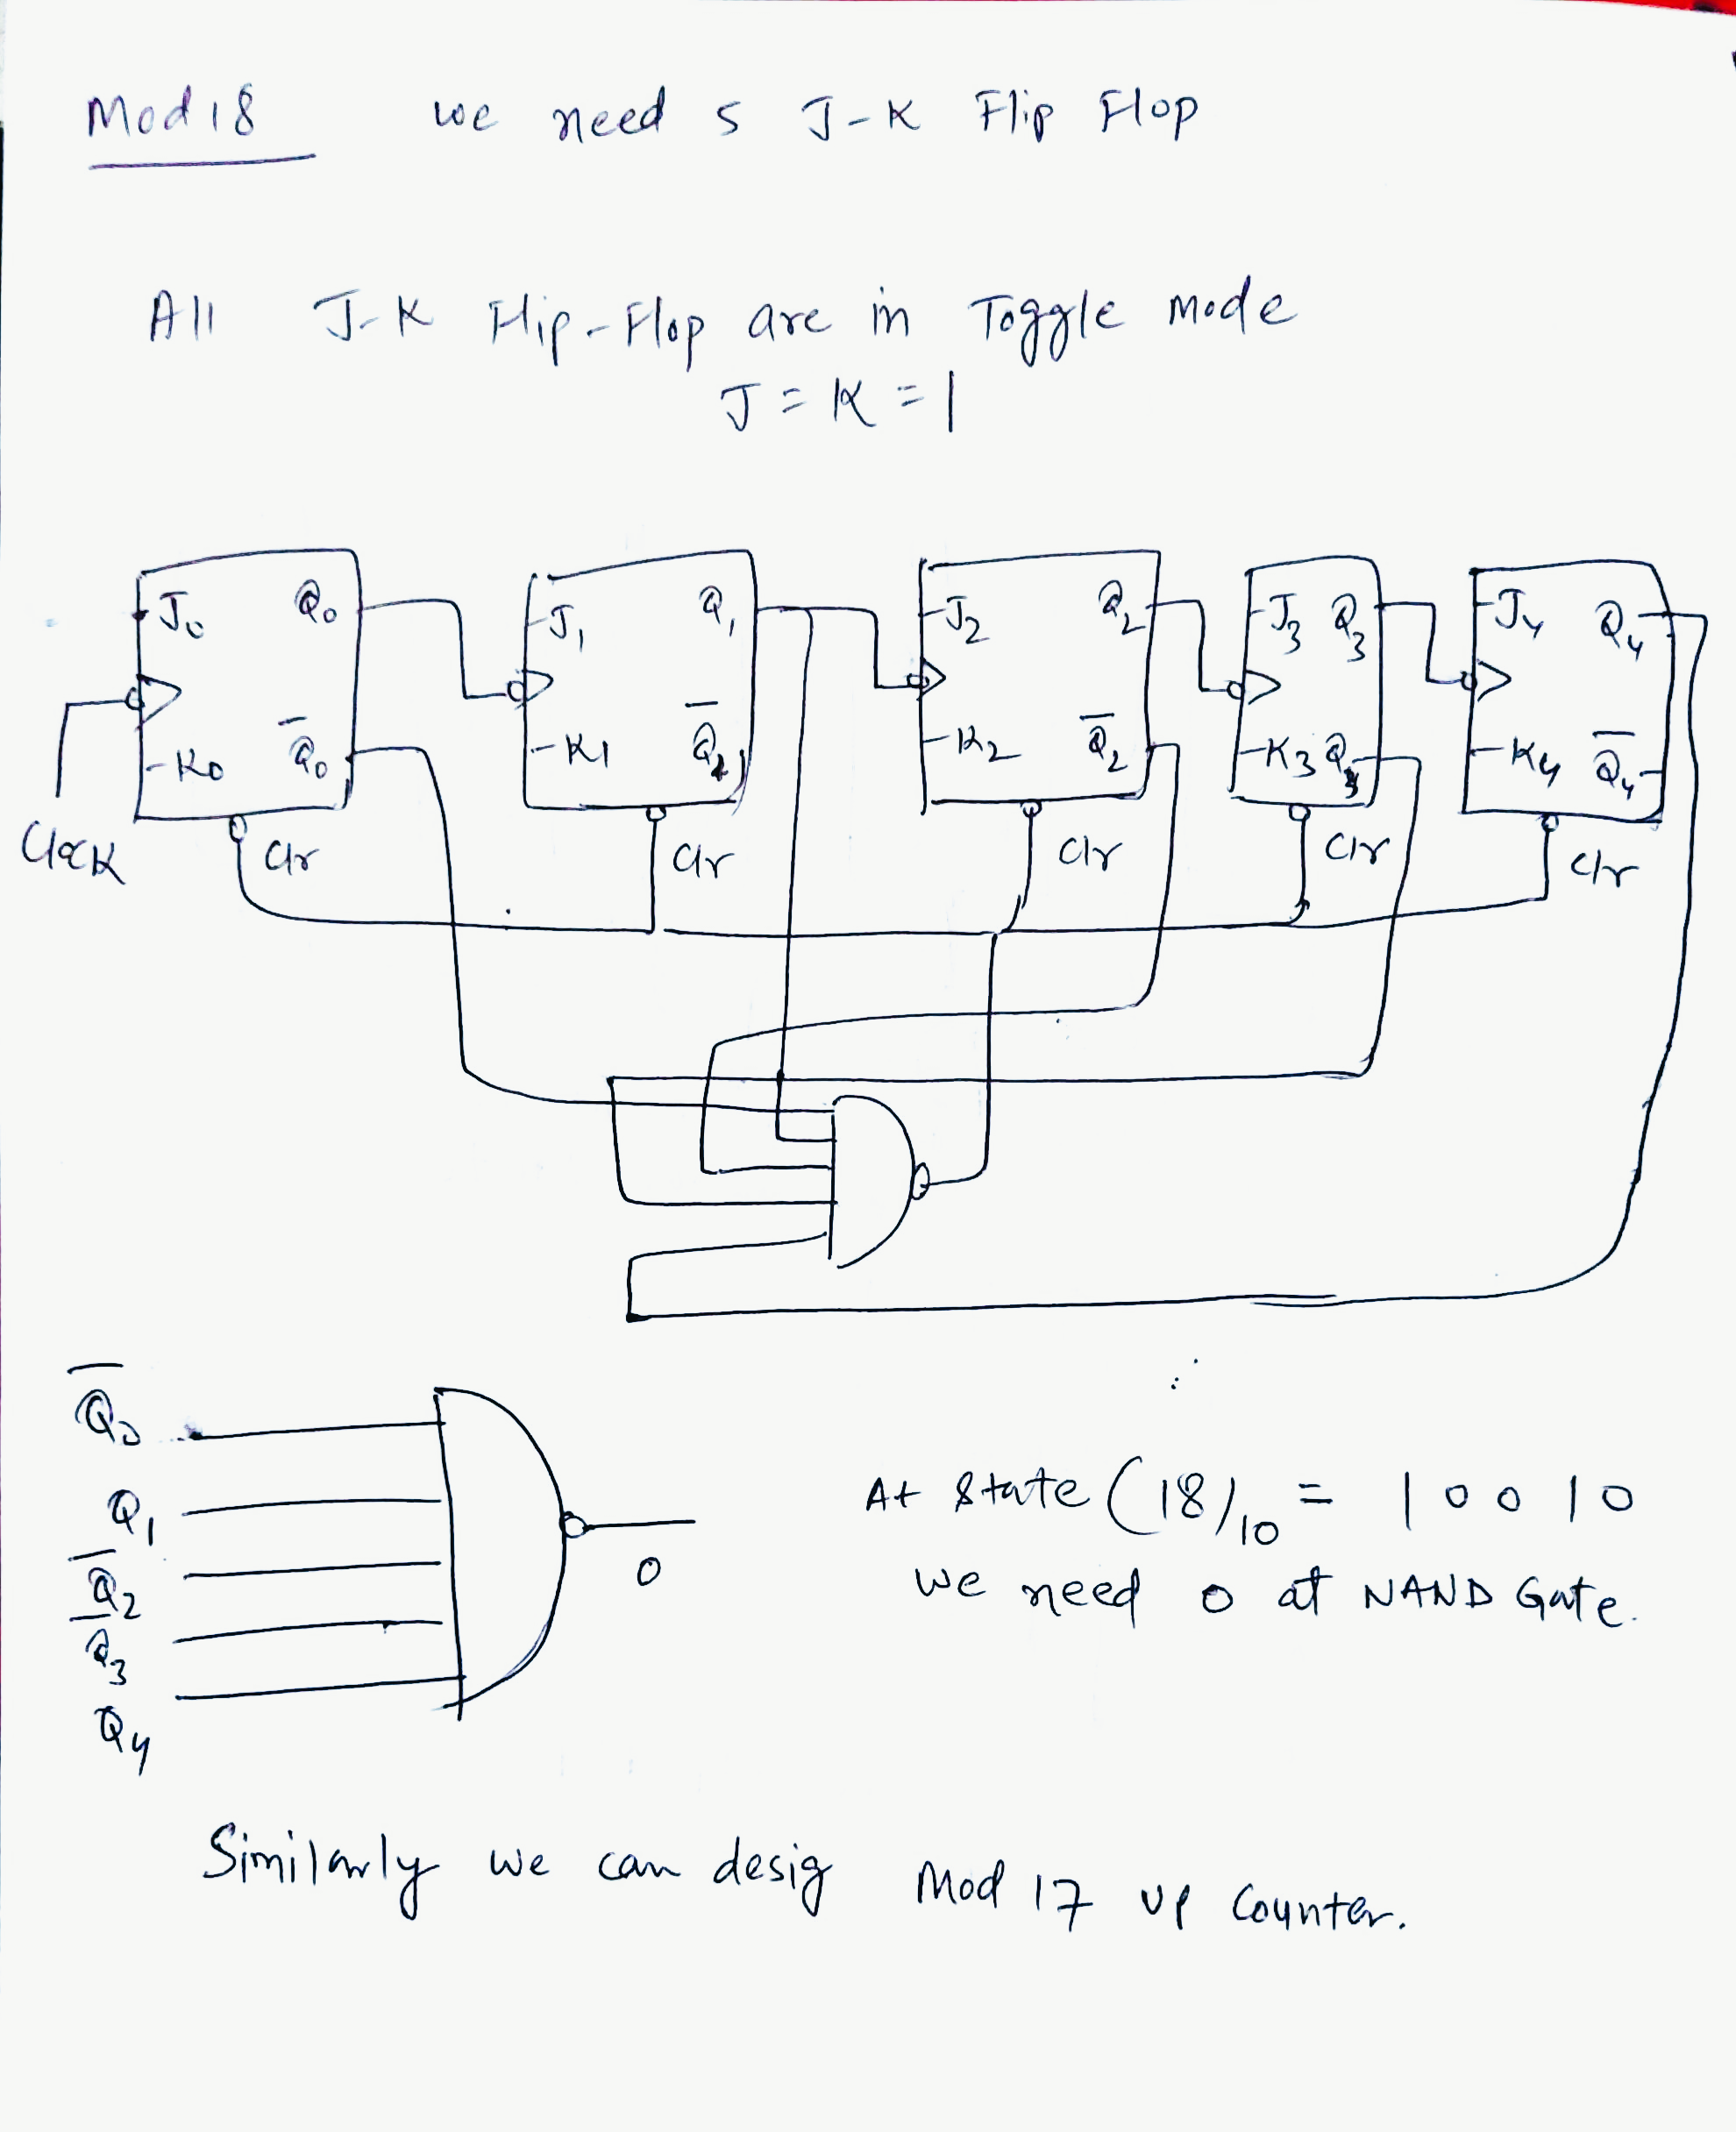 Mod 18 we need 5 J-K Flip Flop
All J-K Flip-Flop are in Toggle Mode
J = K = 1
J₀ Q₀ J₁ Q₁ J₂ Q₂ J₃ Q₃ J₄ Q₄
K₀ Q̅₀ K1 Q̅₁ K₂ Q̅₂ K3 Q₃ K₄ Q̅₄
Clock Clr Clr Clr Clr Clr
Q̅₀
Q₁
Q̅₂
Q̅₃
Q₄
0
At State (18)₁₀ = 10010
we need 0 at NAND Gate.
Similarly we can desig Mod 17 up Counter.